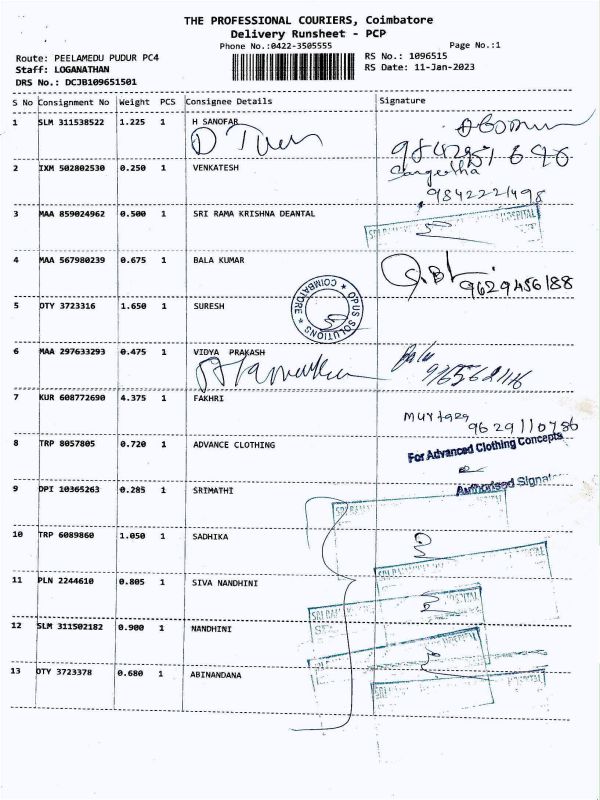 THE PROFESSIONAL COURIERS, Coimbatore
Delivery Runsheet - PCP
Phone No.:0422-3505555 Page No.:1
Route: PEELAMEDU PUDUR PC4 RS No.: 1096515
Staff: LOGANATHAN RS Date: 11-Jan-2023
DRS No.: DCJB109651501
S No Consignment No Weight PCS Consignee Details Signature
1 SLM 311538522 1.225 1 H SANOFAR
2 IXM 502802530 0.250 1 VENKATESH
Sangeetha
9842221498
3 MAA 859024962 0.500 1 SRI RAMA KRISHNA DEANTAL
HOSPITAL
4 MAA 567980239 0.675 1 BALA KUMAR
9629456188
5 OTY 3723316 1.650 1 SURESH
OPUS SOLUTIONS * COIMBATORE *
6 MAA 297633293 0.475 1 VIDYA PRAKASH
7 KUR 608772690 4.375 1 FAKHRI
9629110786
8 TRP 8057805 0.720 1 ADVANCE CLOTHING
For Advanced Clothing Concepts
Authorised Signat
9 OPI 10365263 0.285 1 SRIMATHI
10 TRP 6089860 1.050 1 SADHIKA
11 PLN 2244610 0.805 1 SIVA NANDHINI
12 SLM 311502182 0.900 1 NANDHINI
13 OTY 3723378 0.680 1 ABINANDANA